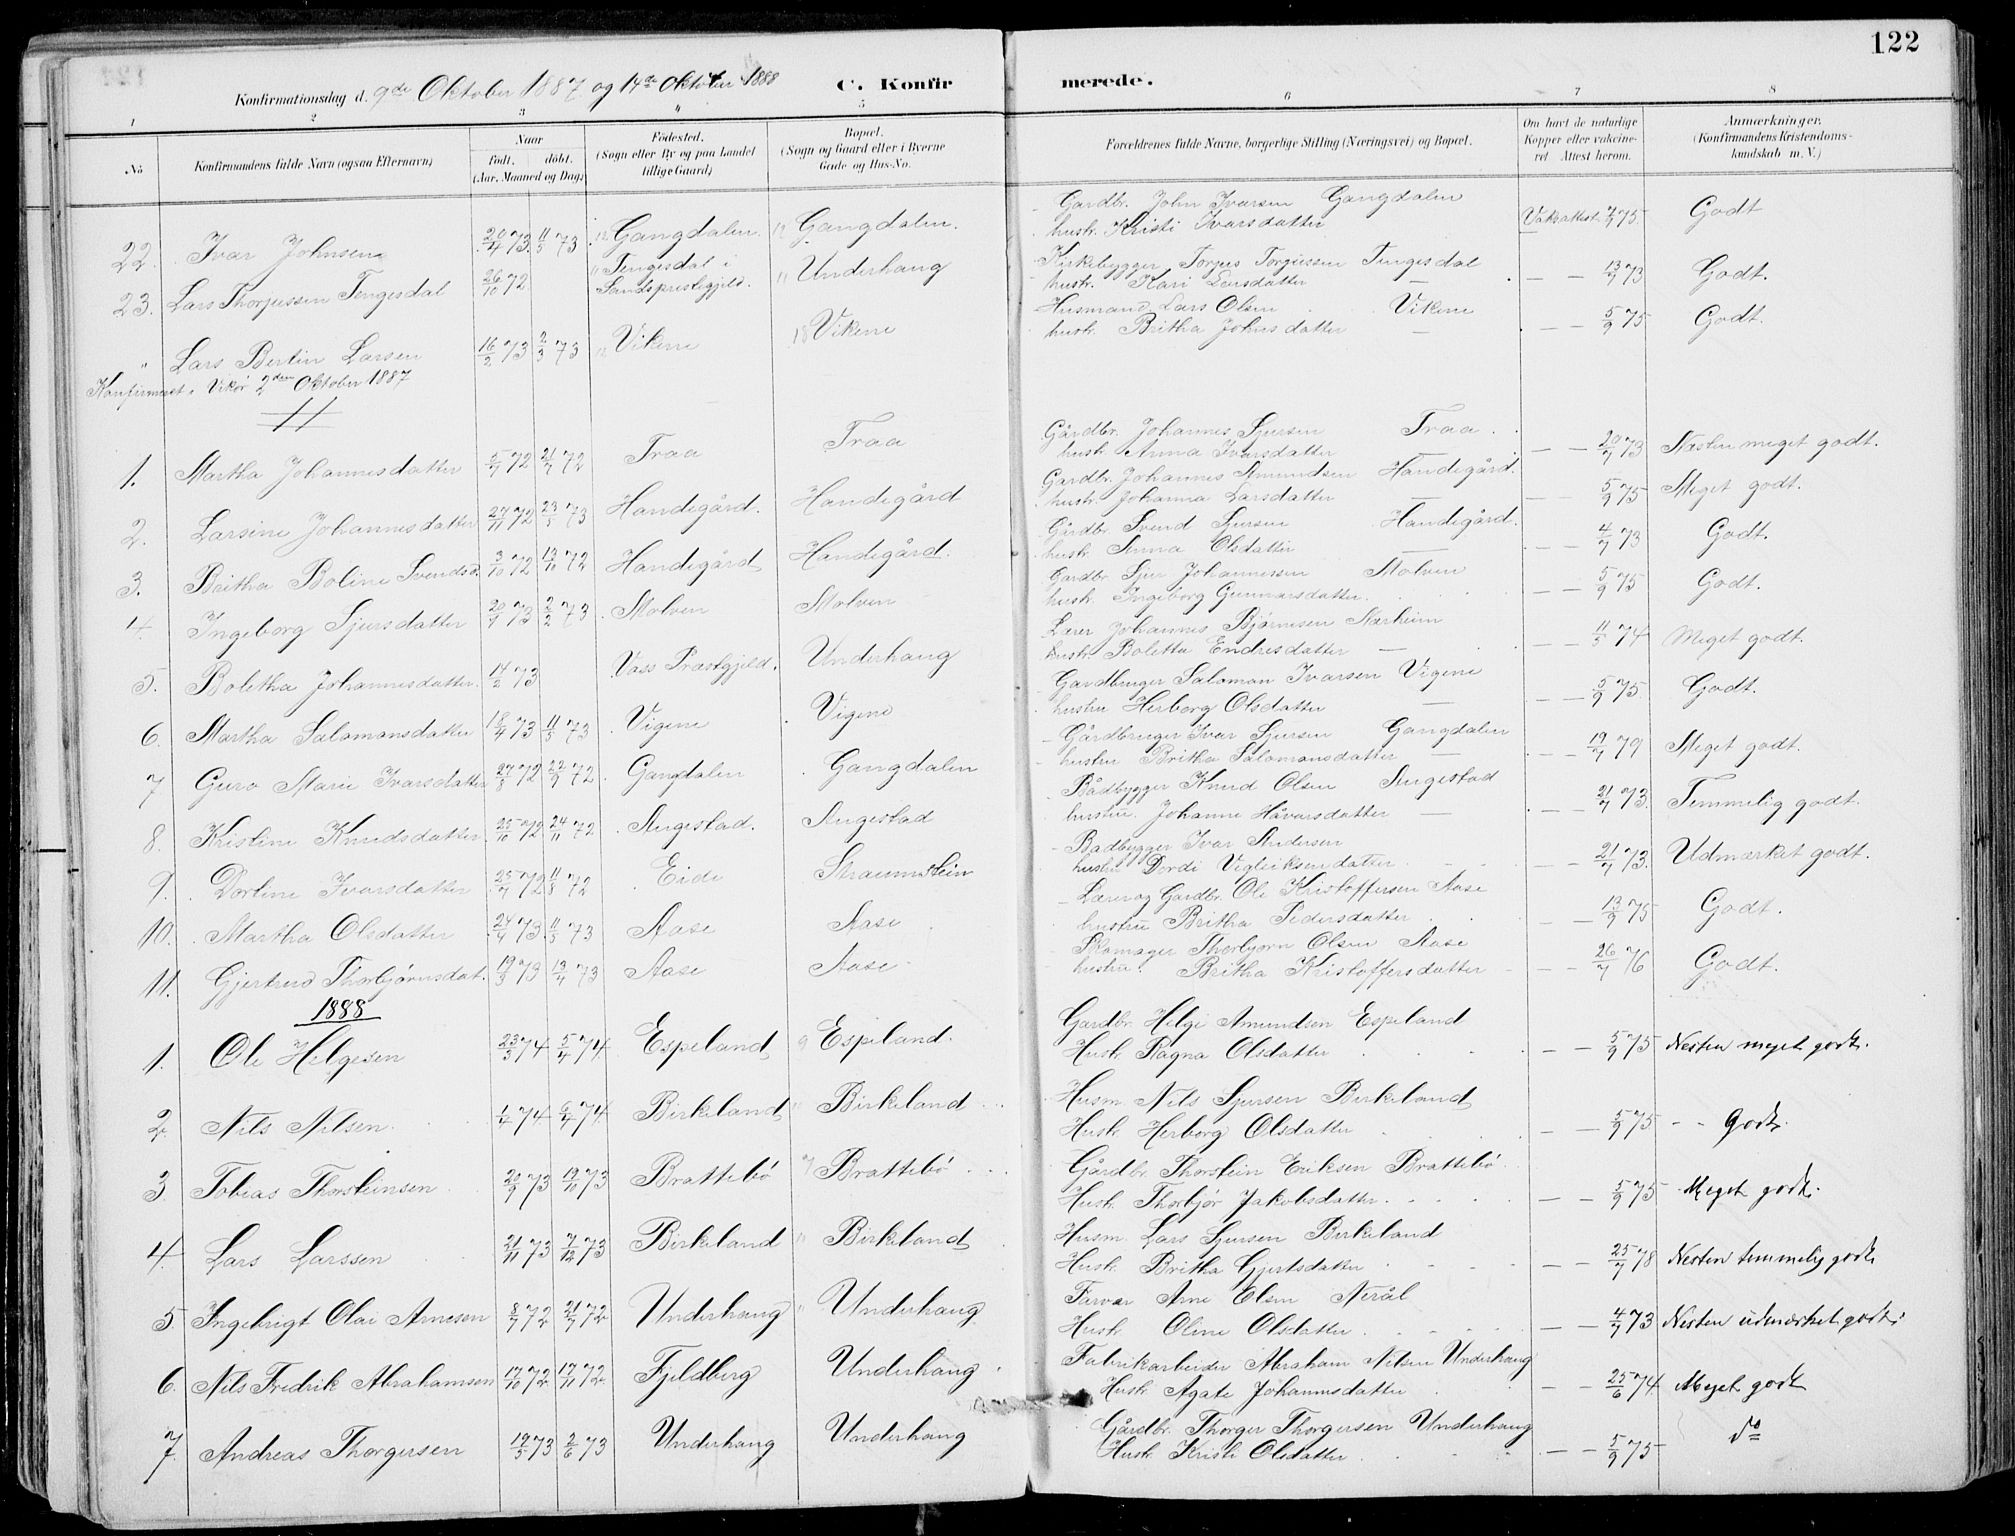 122
Konfirmationsdag d. 9de Oktober 1887 og 14de Oktober 1888 C. Konfirmerede.
1 2 3 4 5 6 7 8
No Konfirmandens fulde Navn (ogsaa Efternavn) Naar født. døbt. (Aar, Maaned og Dag.) Fødested. (Sogn eller By og paa Landet tillige Gaard) Bopæl. (Sogn og Gaard eller i Byerne Gade og Hus-No. Forældrenes fulde Navne, borgerlige Stilling (Næringsvei) og Bopæl. Om havt de naturlige Kopper eller vakcineret. Attest herom. Anmærkninger. (Konfirmandens Kristendomskundskab m. V.)
Gardbr. John Ivarsen Gangdalen
22. Ivar Johnsen 20/4 73 11/5 73 Gangdalen Gangdalen. hustr. Kristi Ivarsdatter Vaksattest 75 Godt
Kirkebygger Torjus Torjussen Tengesdal
23. Lars Thorjussen Tengesdal 26/10 72 Tengesdal i Sandsprestegjeld. Underhaug hustr. Kari Larsdatter — — 13/7 73 Godt.
Husmand Lars Olsen Vikene
" Lars Bertin Larsen 16/2 73 2/3 73 Vikene 18 Vikene hustr. Britha Johnsdatter — — — 5/9 75 Godt.
Konfirmeret i Vikør 2den Oktober 1887
Gårdbr. Johannes Sjursen Traa
1. Martha Johannesdatter 5/7 72 21/7 72 Traa Traa hustr. Anna Ivarsdatter — — 20/7 73 Næsten meget godt.
Gardbr. Johannes Amundsen Handegård.
2. Larsine Johannesdatter 27/11 72 23/3 73 Handegård. Handegård hustr. Johanna Larsdatter — — — 5/9 75 Meget godt.
Gårdbr. Svend Sjursen Handegård.
3. Britha Boline Svendsd. 3/10 72 13/10 72 Handegård Handegård. hustr. Anna Olsdatter — — — 4/7 73 Godt.
Gardbr. Sjur Johannessen Molven
4. Ingeborg Sjursdatter 20/1 73 2/2 73 Molven Molven hustr. Ingeborg Gunnarsdatter. — — 5/9 75 Godt.
Lærer Johannes Bjørnesen Nærheim
5. Boletha Johannesdatter. 14/2 73 Voss Præstgjeld. Underhaug hustr. Boletta Endresdatter — 11/5 74 Meget godt.
Gardbruger Salomon Ivarsen Vigene
6. Martha Salamonsdatter 18/4 73 11/5 73 Vigene Vigene hustru Herborg Olsdatter — — 5/9 75. Godt.
Gårdbruger Ivar Sjursen Gangdalen
7 Guro Marie Ivarsdatter 27/8 72 22/9 72 Gangdalen Gangdalen hustru Britha Salomonsdatter — — — 19/7 79 Meget godt.
Bådbygger Knud Olsen Augestad
8. Kristine Knudsdatter 25/10 72 24/11 72 Augestad. Augestad hustru. Johanne Håvarsdatter — — — 21/7 73. Temmelig godt.
Badbygger Ivar Andersen
9. Dortine Ivarsdatter 25/7 72 11/8 72 Eide Straumstein hustru Dordi Vigleiksendatter — — 21/7 73. Udmærket godt.
Lærer og Gardbr. Ole Kristoffersen Aase
10. Martha Olsdatter 24/4 73 11/5 73 Aase Aase hustru Britha Pedersdatter — — 13/9 75 Godt.
Skomager Thorbjørn Olsen Aase
11. Gjertrud Thorbjørnsdat. 19/3 73 13/4 73 Aase Aase hustru. Britha Kristoffersdatter — — 26/7 76 Godt.
1888
Gardbr. Helge Amundsen Espeland
1. Ole Helgesen 23/3 74 5/4 74 Espeland 9 Espeland. Hustr. Ragna Olsdatter — — 5/9 75 Nesten meget godt.
Husm. Nils Sjursen Birkeland
2 Nils Nilsen. 1/4 74 6/4 74 Birkeland Birkeland Hustr. Herborg Olsdatter — — 5/9 75 - - Godt.
Gårdbr. Thorstein Eriksen Brattebø
3. Tobias Thorsteinsen 20/9 73 19/10 73 Brattebø 7 Brattebø Hustr. Thorbjør Jakobsdatter — — 5/9 75 Meget godt.
Husm. Lars Sjursen Birkeland
4. Lars Larssen 21/11 73 7/12 73 Birkeland Birkeland Hustr. Britha Gjertsdatter — — 25/7 78 Nesten temmelig godt
Farvar Arne Olsen Nerål
5. Ingebrigt Olai Arnesen 8/7 72 21/7 72 Underhaug Underhaug Hustr. Oline Olsdatter — — 4/7 73 Nesten udmærket godt.
Fabrikarbeider Abraham Nilsen Underhaug
6. Nils Fredrik Abrahamsen 17/10 72 17/11 72 Fjeldberg Underhaug Hustr. Agate Johannesdatter — — 25/6 74 Meget godt
Gårdbr. Thorger Thorgersen Underhaug
7. Andreas Thorgersen 19/5 73 2/6 73 Underhaug Underhaug Hustr. Kristi Olsdatter — — 5/9 75 do